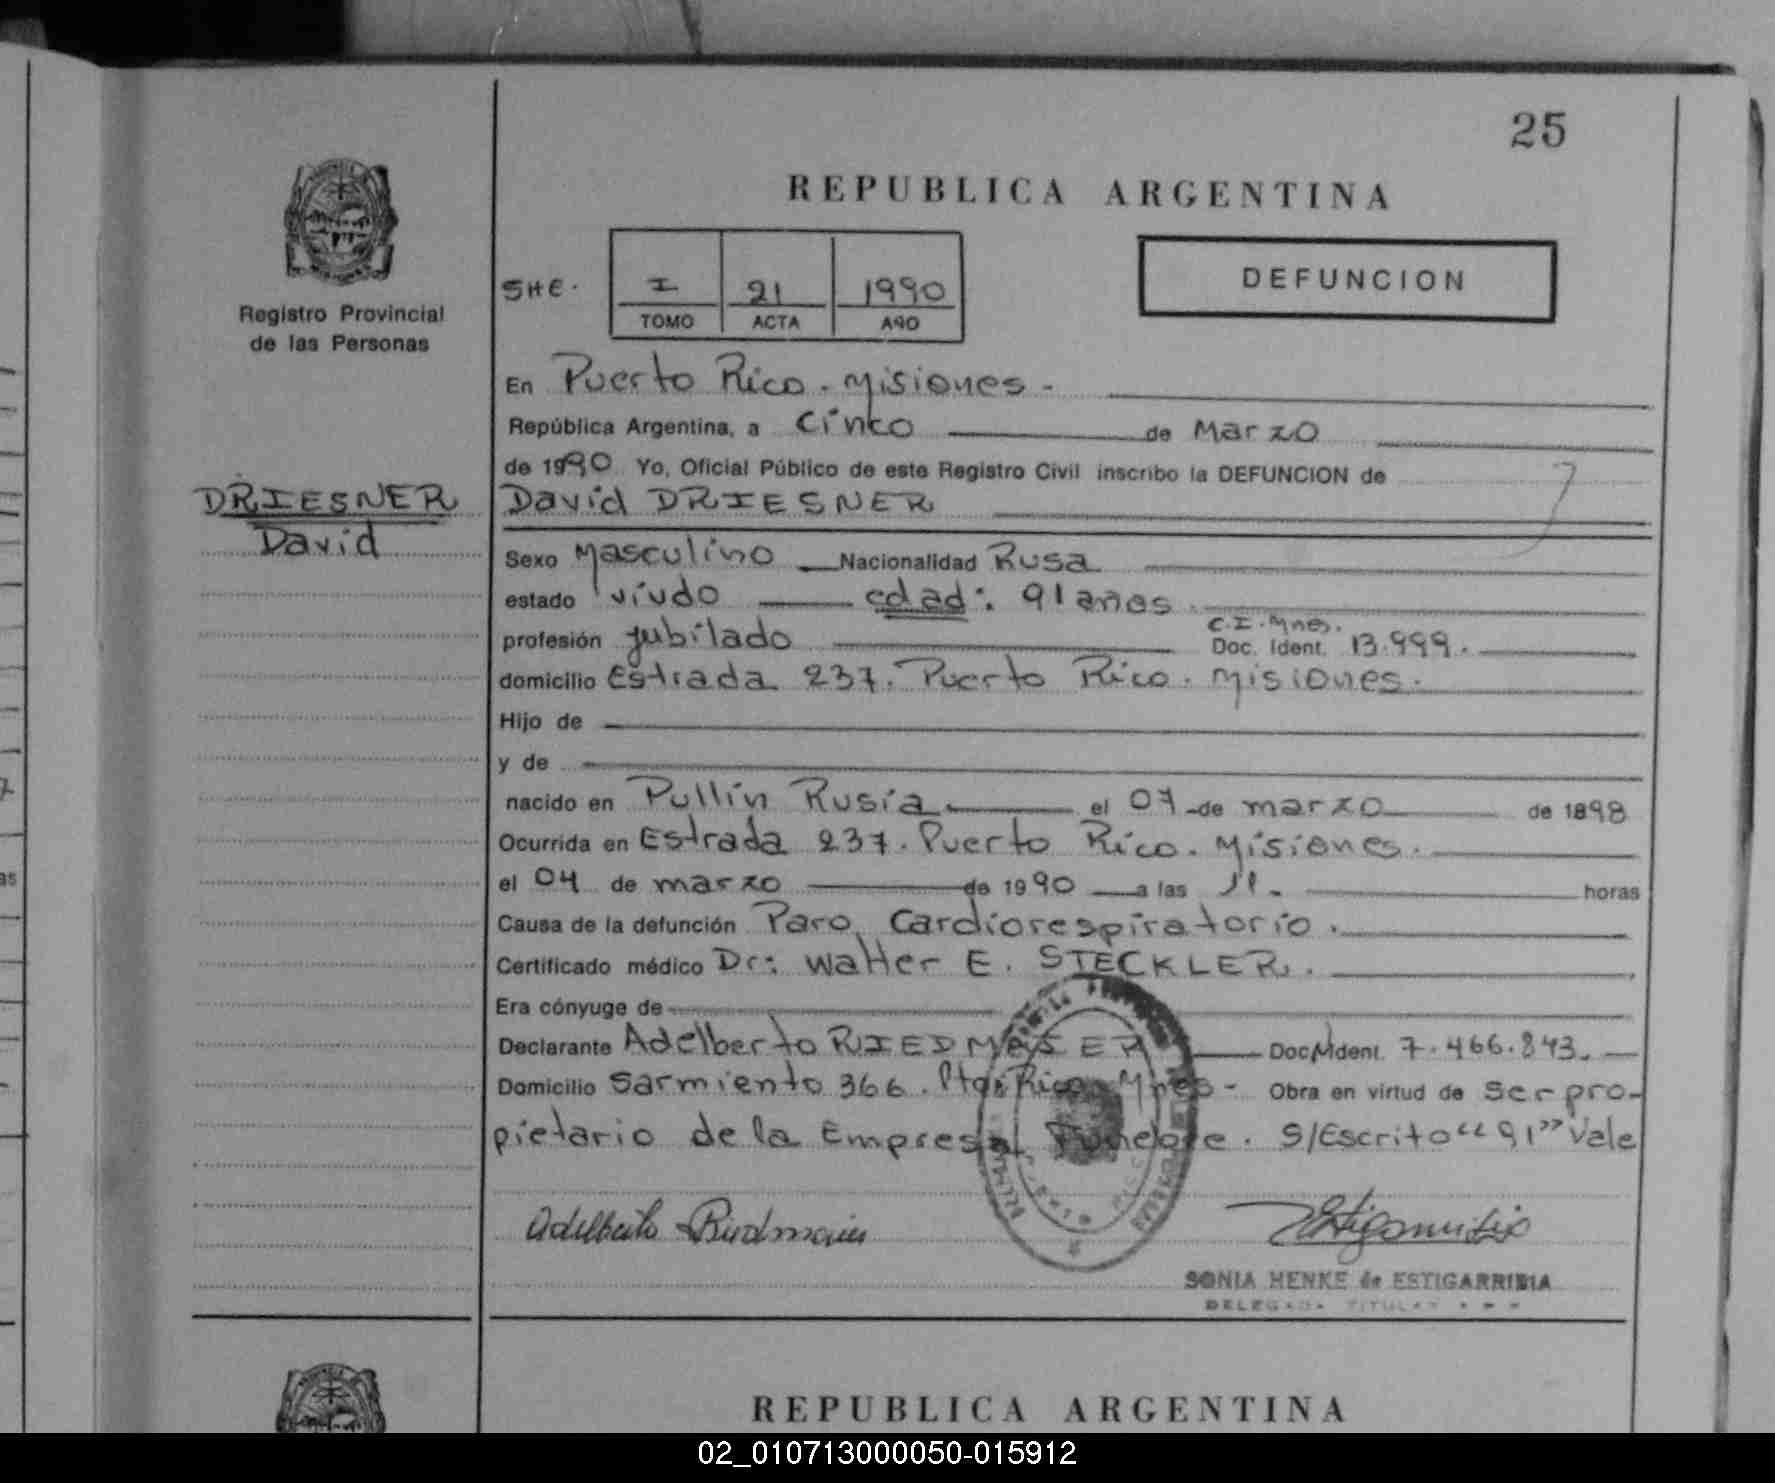 25
REPUBLICA ARGENTINA
Registro Provincial
de las Personas
SHE. I 21 1990
TOMO ACTA AÑO
DEFUNCION
En Puerto Rico. Misiones.
República Argentina, a cinco de Marzo
de 1990 Yo, Oficial Público de este Registro Civil inscribo la DEFUNCION de
DRIESNER
David
David DRIESNER
Sexo Masculino Nacionalidad Rusa
estado viudo edad: 91 años.
profesión jubilado C.I. Mnes. Doc. Ident. 13.999.
domicilio Estrada 237. Puerto Rico. Misiones.
Hijo de
y de
nacido en Pullin Rusia el 07 de marzo de 1898
Ocurrida en Estrada 237. Puerto Rico. Misiones.
el 04 de marzo de 1990 a las 11. horas
Causa de la defunción Paro Cardiorespiratorio.
Certificado médico Dr: Walter E. STECKLER.
Era cónyuge de
Declarante Adelberto RIEDMAIER Doc. Ident. 7.466.843.
Domicilio Sarmiento 366. Pto. Rico. Mnes- Obra en virtud de ser pro-
pietario de la Empresa Funebre. S/Escrito "91" Vale
Adelberto Riedmaier
SONIA HENKE de ESTIGARRIBIA
DELEGADA TITULAR
REPUBLICA ARGENTINA
02_010713000050-015912